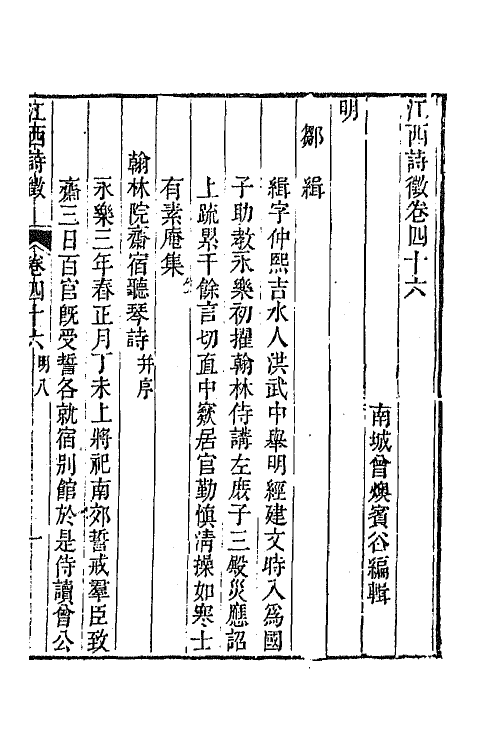 江西詩徵卷四十六
南城曾燠賓谷編輯
明
鄒緝
緝字仲熙吉水人洪武中舉明經建文時入為國
子助教永樂初擢翰林侍講左庶子三殿災應詔
上疏累千餘言切直中窾居官勤慎清操如寒士
有素庵集
翰林院齋宿聽琴詩并序
永樂三年春正月丁未上將祀南郊誓戒羣臣致
齋三日百官既受誓各就宿別館於是侍讀曾公
江西詩徵 卷四十六 明八 一